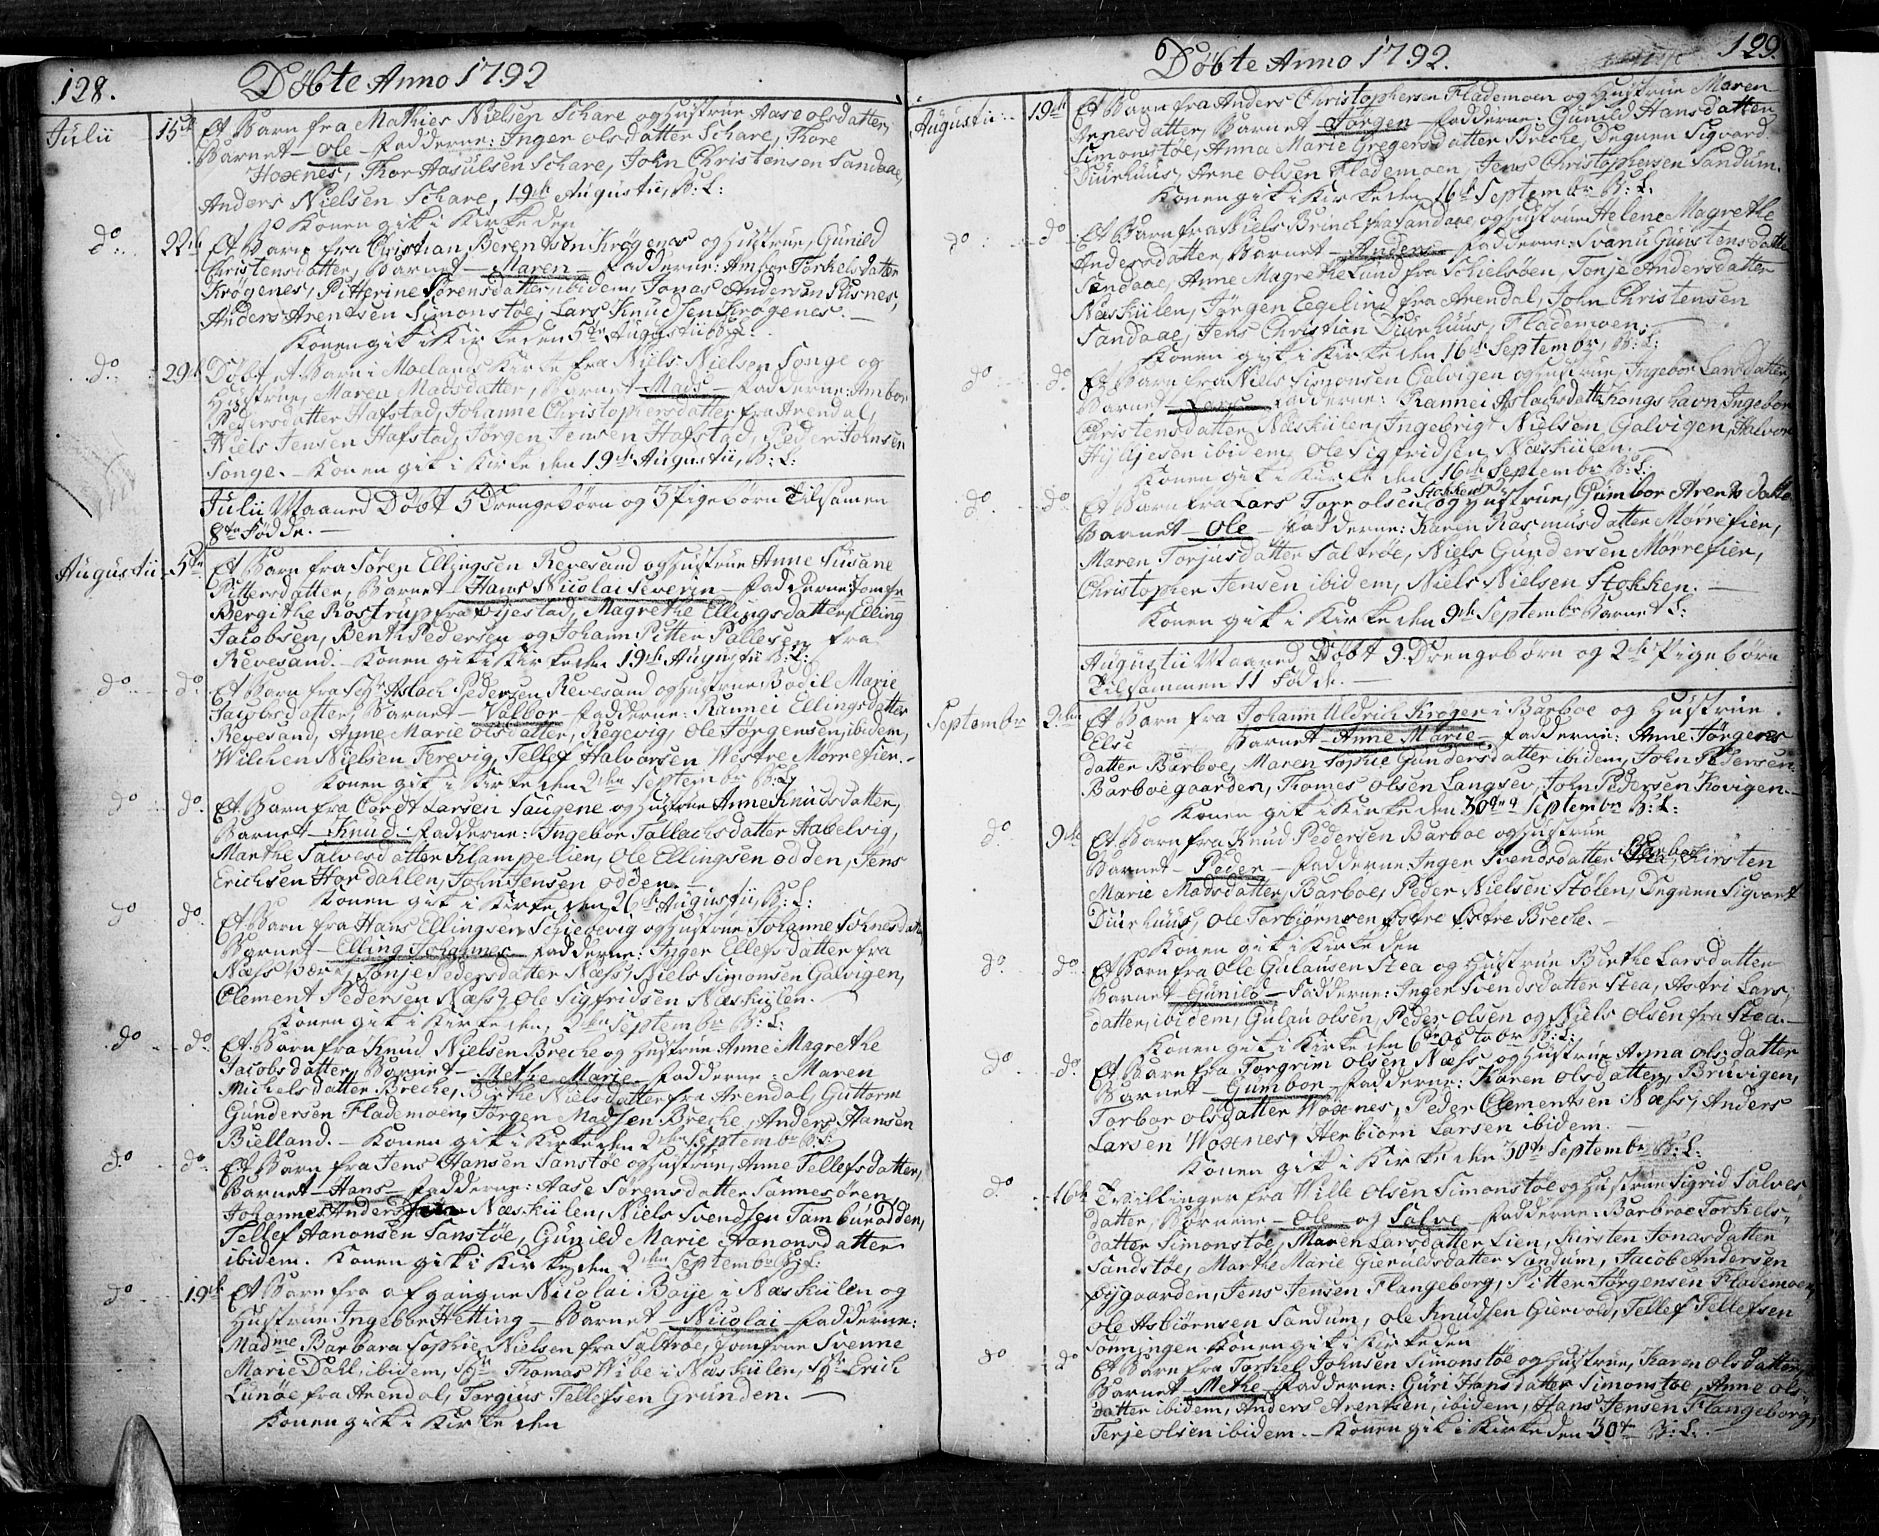 128.
Døbte Anno 1792
Julii 15de Et Barn fra Mathies Nielsen Schare og Hustrue Aase olsdatter,
Barnet – Ole – Fadderne: Inger olsdatter Schare, Thore
Woxnes, Thor Aasulsen Schare, John Christensen Sandaae,
Anders Nielsen Schare, 19de Augustii, B: L:
Konen gik i Kirke den
do 22de Et Barn fra Christian Berentsen Krøgenes og Hustrue, Gunild
Christensdatter, Barned – Maren – Fadderne: Ambor Torkelsdatter
Krøgenes, Pitterine Sørensdatter ibidem, Jonas Andersen Pusnes,
Anders Arentsen Simonstøe, Lars Knudsen Krøgenes. –
Konen gik i Kirke den 5te Augustii B: L:
do 29de Døbt et Barn i Moelands Kirke fra Niels Nielsen Songe og
Hustrue, Maren Madsdatter, Barnet – Mads – Fadderne: Ambor
Pedersdatter Hafstad, Johanne Christophersdatter fra Arendal,
Niels Jensen Hafstad, Jørgen Jensen Hafstad, Peder Johnsen
Songe. – Konen gik i Kirke den 19de Augustii, B: L:
Julii Maaned Døbt 5 Drengebørn og 3 Pigebørn Tilsamen
8te Fødde. –
Augustii 5te Et Barn fra Søren Ellingsen Revesand og Hustrue Anne Susane
Pittersdatter, Barnet – Hans Nicolai Severin – Fadderne: Jomfr
Bergithe Rostrup fra Øyestad, Magrethe Ellingsdatter, Elling
Jacobsen, Bent Pedersen og Johann Pitter Pallesen fra
Revesand. – Konen gik i Kirke den 19de Augustii B: L:
do do Et Barn fra Aslach Pedersen Revesand og Hustrue Bodil Marie
Jacobsdatter, Barnet – Valbor – Fadderne: Rannei Ellingsdatter
Revesand, Anne Marie olsdatter, Regevig, Ole Jørgensen, ibidem,
Wilchen Nielsen Terevig, Tellef Halvorsen Westre Mørrefier. –
Konen gik i Kirke den 2den Septembr B: L:
do do Et Barn fra Cordt Larsen Saugene og Hustrue Anne Knudsdatter,
Barnet – Knud – Fadderne: Ingebor Tallachsdatter Aabelvig,
Marthe Salvesdatter Klampelien, Ole Ellingsen odden, Jens
Erichsen Hordahlen, John Jensen odden. –
Konen gik i Kirke den 26de Augustii, B: L:
do do Et Barn fra Hans Ellingsen Schielevig og Hustrue Johanne Johnesdatt
Barnet – Elling Johannes – Fadderne: Inger Ellefsdatter fra
Næss Værk, Tonje Pedersdatter Næss, Niels Simonsen Galvigen,
Clement Pedersen Næss, Ole Sigfridsen Næskiilen. –
Konen gik i Kirke den, 2den Septembr B: L:
do do Et Barn fra Knud Nielsen Breche og Hustrue Anne Magrethe
Jacobsdatter, Barnet – Methe Marie – Fadderne: Maren
Michelsdatter Breche, Birthe Nielsdatter fra Arendal, Guttorm
Gundersen Flademoen, Jørgen Madsen Breche, Anders Hansen
Bielland. – Konen gik i Kirke den 2den Septembr B: L:
do do Et Barn fra Jens Hansen Sanstøe og Hustrue, Anne Tellefsdatter,
Barnet – Hans – Fadderne: Aase Sørensdatter Sannesøren,
Johannes Anders Næskiilen, Niels Svendsen Tamburodden,
Tellef Aanonsen Sanstøe, Gunild Marie Aanonsdatter
ibidem. Konen gik i Kirke den 2den Septembr B: L:
do 19de Et Barn fra afgangne Nicolai Boye i Næskiilen og
Hustrue Ingebor Hetting – Barnet – Nicolai – Fadderne:
Madme Barbara Sophie Nielsen fra Saltrøe, Jomfrue Svenne
Marie Dahl, ibidem, Sr Thomas Wibe i Næskiilen, Sr Erich
Lunøe fra Arendal, Torgius Tellefsen Grunden. –
Konen gik i Kirke den
Døbte Anno 1792.
129.
Augustii 19de Et Barn fra Anders Christophersen Flademoen og Hustrue Maren
Arnesdatter, Barnet – Jørgen – Fadderne: Gunild Hansdatter
Simonstøe, Anna Marie Gregersdatter Breche, Degnen Sigvard
Duurhuus, Arne Olsen Flademoen, Jens Christophersen Sandum.
Konen gik i Kirke den 16de Septembr B: L:
do do Et Barn fra Niels Brinch fra Sandaae og Hustrue Helene Magrethe
Andersdatter, Barnet – Anders – Fadderne: Svanu Gunstensdatter
Sandaae, Anne Magrethe Lund fra Schielsøen, Tonje Andersdatter
Næskiilen, Jørgen Eegelund fra Arendal, John Christensen
Sandaae, Jens Christian Duurhuus, Flademoen.
Konen gik i Kirke den 16de Septembr, B: L:
do do Et Barn fra Niels Simonsen Galvigen og Hustrue, Ingebor Larsdatter,
Barnet – Lars – Fadderne: Rannei Aslachsdatt Kongshavn, Ingebor
Christensdatter, Næskiilen, Ingebrigt Nielsen Galvigen, Halvor
ibidem, Ole Sigfridsen, Næskiilen.
Konen gik i Kirke den 16de Septembr B: L:
do do Et Barn fra Lars Torrolsen Stokken og Hustrue, Gumbor Arentsdatte
Barnet – Ole – Fadderne: Karen Rasmusdatter Mørrefier,
Maren Torjusdatter Saltrøe, Niels Gundersen Mørrefier,
Christopher Jensen ibidem, Niels Nielsen Stokken. –
Konen gik i Kirke den 9de Septembr Barnet L:
Augustii Maaned Døbt 9 Drengebørn og 2de Pigebørn
Tilsammen 11 Fødde. –
Septembr 2den Et Barn fra Johann Uldrich Krøger i Barboe og Hustrue
Else Barnet – Anne Marie – Fadderne: Anne Jørgens
datter Barboe, Maren Sophie Gundersdatter ibidem, John Pedersen
Barboegaarden, Thomes Olsen Langsev, John Pedersen Kovigen. –
Konen gik i Kirke den 30de Septembr B: L:
do 9de Et Barn fra Knud Pedersen Barboe og Hustrue
Barnet – Peder – Fadderne: Inger Svendsdatter Barboe, Kirsten
Marie Madsdatter, Barboe, Peder Nielsen Stølen, Degnen Sigvart
Duurhuus, Ole Torbiørnsen Østre Breche. –
Konen gik i Kirke den
do do Et Barn fra Ole Gulausen Stea og Hustrue Birthe Larsdatter
Barnet – Gunild – Fadderne: Inger Svendsdatter Stea, Astri Lars,
datter, ibidem, Gulau olsen, Peder olsen og Niels olsen fra Stea. –
Konen gik i Kirke den 6de October B: L:
do do Et Barn fra Torgrim olsen Næss og Hustrue, Anna olsdatter
Barnet – Gumbor – Fadderne: Karen olsdatter, Bruvigen,
Torbor olsdatter Woxnes, Peder Clementsen Næss, Anders
Larsen Woxnes, Herbiørn Larsen ibidem. –
Konen gik i Kirke den 30de Septembr B: L:
do 16de Tvillinger fra Wille Olsen Simonstøe og Hustrue Sigrid Salves
datter, Børnene – Ole – og Salve – Fadderne: Barbroe Torkels,
datter Simonstøe, Maren Larsdatter Lien, Kirsten Jonasdatter
Sandstøe, Marthe Marie Gierulsdatter Sandum, Jacob Andersen
Øygaarden, Jens Jensen Flangeborg, Pitter Jørgensen Flademoen,
Ole Asbiørnsen Sandum, Ole Knudsen Gurvold, Tellef Tellefsen
Sønningen Konen gik i Kirke den
do do Et Barn fra Torkel Johnsen Simonstøe og Hustrue, Karen olsdatter
Barnet – Methe – Fadderne: Guri Hansdatter Simonstøe, Anne ols,
datter ibidem, Anders Arentsen, ibidem, Hans Jensen Flangeborg,
Terje olsen ibidem. – Konen gik i Kirke den 30te B: L: